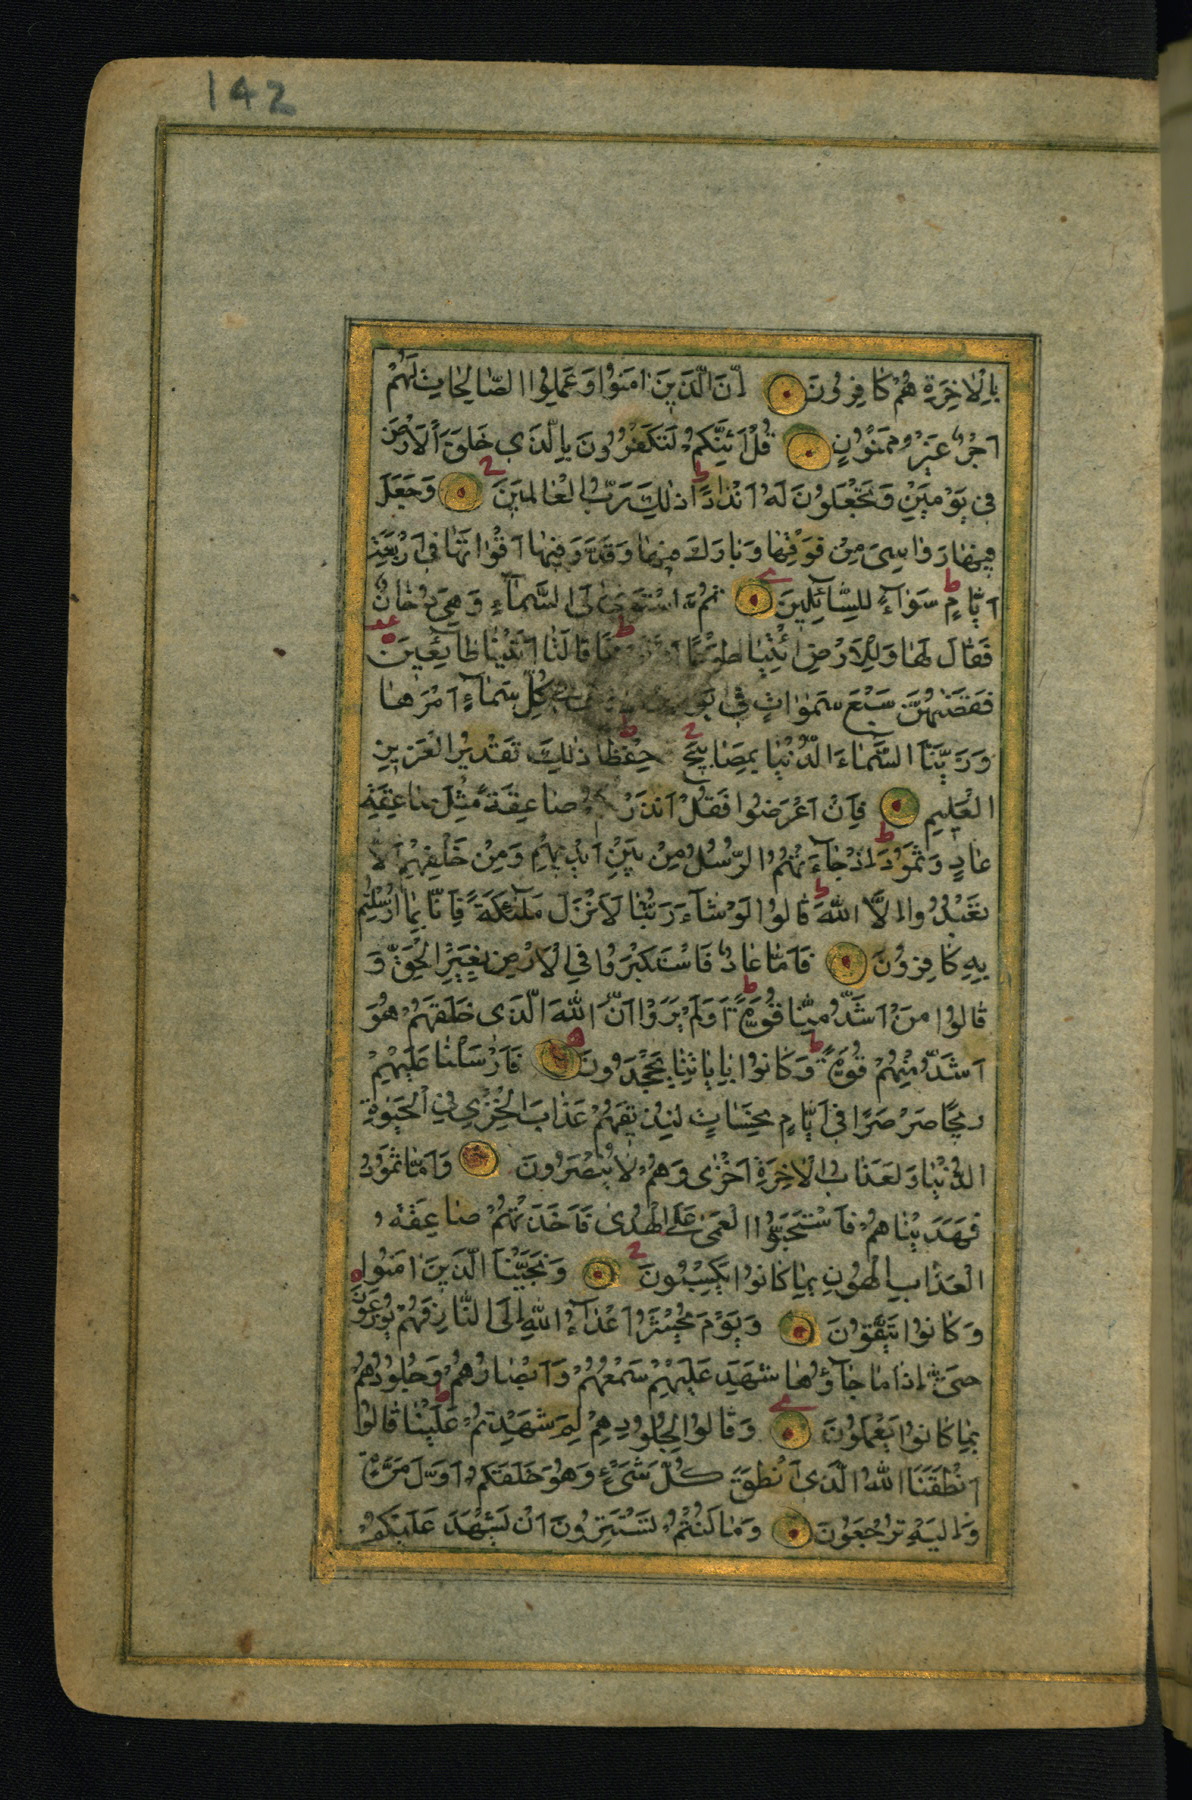 142
بِالْاٰخِرَةِ هُمْ كَافِرُونَ اِنَّ الَّذِينَ اٰمَنُوا وَعَمِلُوا الصَّالِحَاتِ لَهُمْ
اَجْرٌ غَيْرُ مَمْنُونٍ قُلْ اَئِنَّكُمْ لَتَكْفُرُونَ بِالَّذِي خَلَقَ الْاَرْضَ
فِي يَوْمَيْنِ وَتَجْعَلُونَ لَهُ اَنْدَادًا ط ذٰلِكَ رَبُّ الْعَالَمِينَ وَجَعَلَ
فِيهَا رَوَاسِيَ مِنْ فَوْقِهَا وَبَارَكَ فِيهَا وَقَدَّرَ فِيهَا اَقْوَاتَهَا فِي اَرْبَعَةِ
اَيَّامٍ ط سَوَاءً لِلسَّائِلِينَ ثُمَّ اسْتَوٰى اِلَى السَّمَاءِ وَهِيَ دُخَانٌ
فَقَالَ لَهَا وَلِلْاَرْضِ ائْتِيَا طَوْعًا قَالَتَا اَتَيْنَا طَائِعِينَ
فَقَضٰهُنَّ سَبْعَ سَمٰوَاتٍ فِي كُلِّ سَمَاءٍ اَمْرَهَا
وَزَيَّنَّا السَّمَاءَ الدُّنْيَا بِمَصَابِيحَ حِفْظًا ط ذٰلِكَ تَقْدِيرُ الْعَزِيزِ
الْعَلِيمِ فَاِنْ اَعْرَضُوا فَقُلْ اَنْذَرْ صَاعِقَةً مِثْلَ صَاعِقَةِ
عَادٍ وَثَمُودَ ط اِذْ جَاءَتْهُمُ الرُّسُلُ مِنْ بَيْنِ اَيْدِيهِمْ وَمِنْ خَلْفِهِمْ اَلَّا
تَعْبُدُوا اِلَّا اللّٰهَ ط قَالُوا لَوْ شَاءَ رَبُّنَا لَاَنْزَلَ مَلٰئِكَةً فَاِنَّا بِمَا اُرْسِلْتُمْ
بِهِ كَافِرُونَ فَاَمَّا عَادٌ فَاسْتَكْبَرُوا فِي الْاَرْضِ بِغَيْرِ الْحَقِّ وَ
قَالُوا مَنْ اَشَدُّ مِنَّا قُوَّةً ط اَوَلَمْ يَرَوْا اَنَّ اللّٰهَ الَّذِي خَلَقَهُمْ هُوَ
اَشَدُّ مِنْهُمْ قُوَّةً ط وَكَانُوا بِاٰيَاتِنَا يَجْحَدُونَ فَاَرْسَلْنَا عَلَيْهِمْ
رِيحًا صَرْصَرًا فِي اَيَّامٍ نَحِسَاتٍ لِنُذِيقَهُمْ عَذَابَ الْخِزْيِ فِي الْحَيٰوةِ
الدُّنْيَا وَلَعَذَابُ الْاٰخِرَةِ اَخْزٰى وَهُمْ لَا يُنْصَرُونَ وَاَمَّا ثَمُودُ
فَهَدَيْنَاهُمْ فَاسْتَحَبُّوا الْعَمٰى عَلَى الْهُدٰى فَاَخَذَتْهُمْ صَاعِقَةُ
الْعَذَابِ الْهُونِ بِمَا كَانُوا يَكْسِبُونَ وَنَجَّيْنَا الَّذِينَ اٰمَنُوا
وَكَانُوا يَتَّقُونَ وَيَوْمَ يُحْشَرُ اَعْدَاءُ اللّٰهِ اِلَى النَّارِ فَهُمْ يُوزَعُونَ
حَتّٰى اِذَا مَا جَاؤُهَا شَهِدَ عَلَيْهِمْ سَمْعُهُمْ وَاَبْصَارُهُمْ وَجُلُودُهُمْ
بِمَا كَانُوا يَعْمَلُونَ وَقَالُوا لِجُلُودِهِمْ لِمَ شَهِدْتُمْ عَلَيْنَا ط قَالُوا
اَنْطَقَنَا اللّٰهُ الَّذِي اَنْطَقَ كُلَّ شَيْءٍ وَهُوَ خَلَقَكُمْ اَوَّلَ مَرَّةٍ
وَاِلَيْهِ تُرْجَعُونَ وَمَا كُنْتُمْ تَسْتَتِرُونَ اَنْ يَشْهَدَ عَلَيْكُمْ